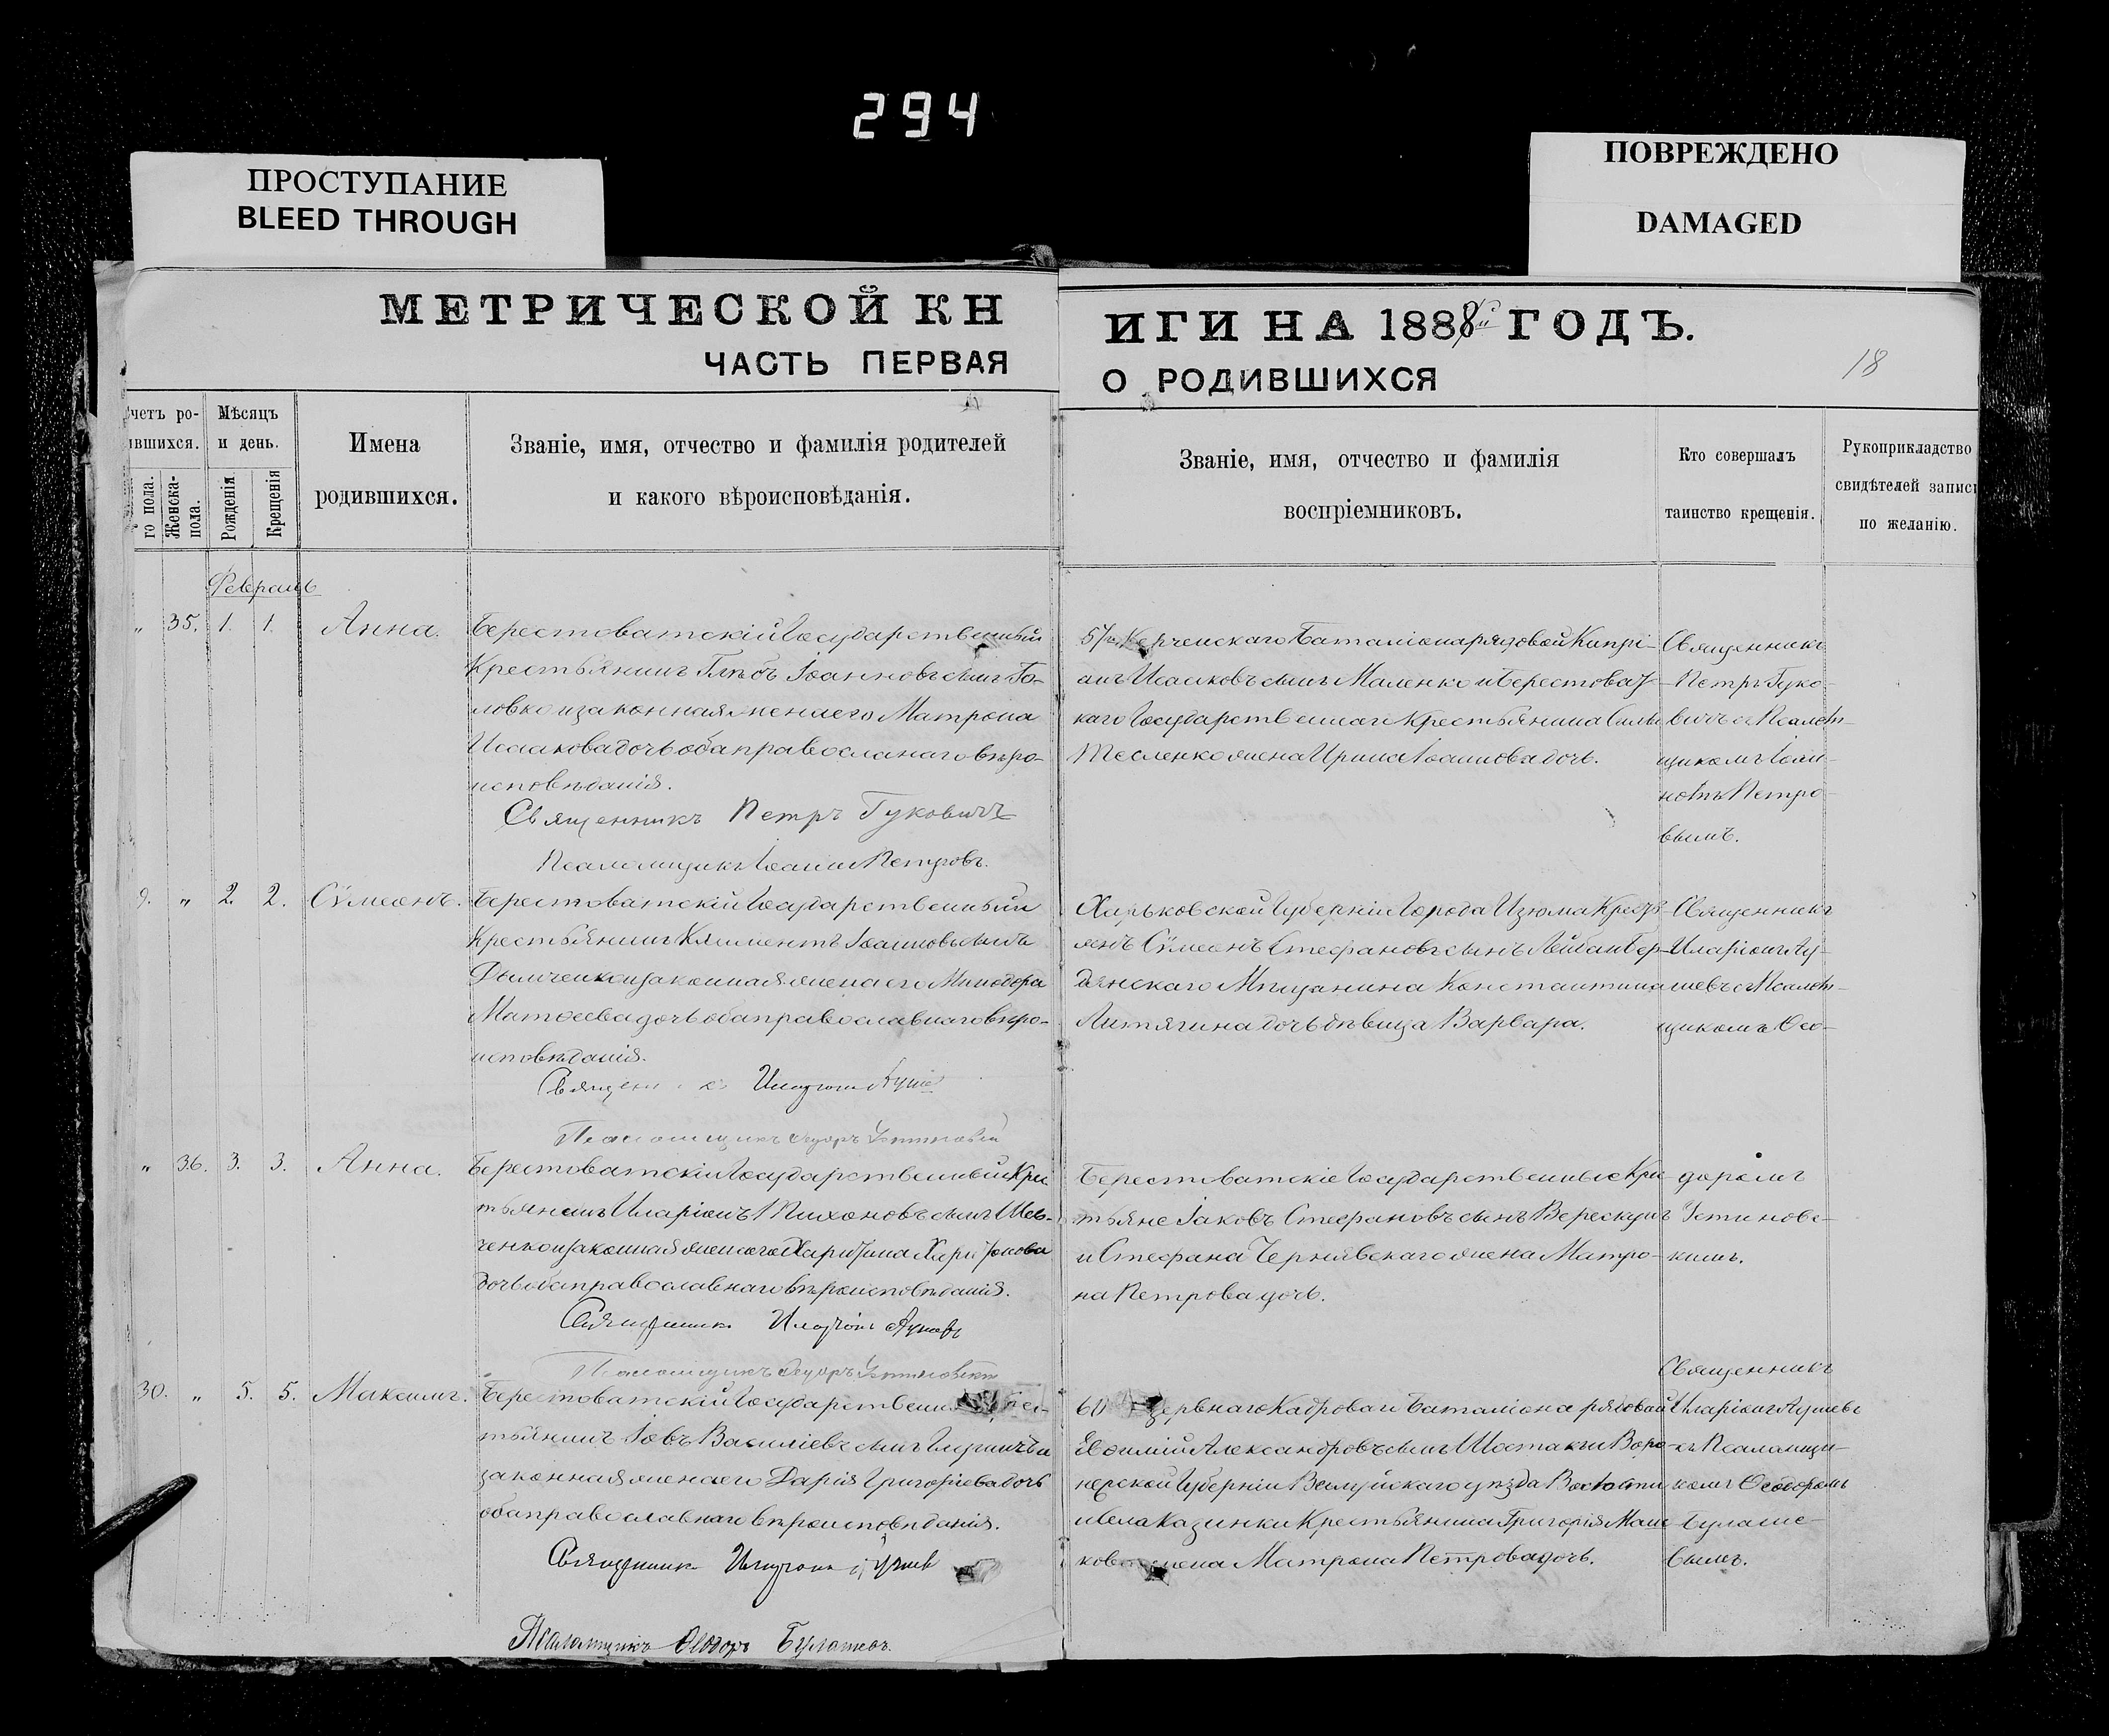 294
ПРОСТУПАНИЕ
BLEED THROUGH
ПОВРЕЖДЕНО
DAMAGED
МЕТРИЧЕСКОЙ КН
ЧАСТЬ ПЕРВАЯ
ИГИ НА 1888й ГОДЪ.
О РОДИВШИХСЯ
18
четъ ро-
ившихся.
го пола.
Женска-
пола.
Мѣсяцъ
и день.
Рожденія
Крещенія
Имена
родившихся.
Званіе, имя, отчество и фамилія родителей
и какого вѣроисповѣданія.
Званіе, имя, отчество и фамилія
воспріемниковъ.
Кто совершалъ
таинство крещенія.
Рукоприкладство
свидѣтелей запис
по желанію.
Февраль
" 35. 1. 1. Анна.
Берестоватскій Государственный
Крестьянинъ Глѣбъ Іоанновъ сынъ Го-
ловко и законная жена его Матрона
Исаакова дочь оба православнаго вѣро-
исповѣданія.
Священникъ Петръ Гукович
Псаломщикъ Іоаннъ Петровъ.
57го Керченскаго Баталіона рядовой Кипрі-
анъ Исааковъ сынъ Маленко и Берестоват-
каго Государственнаго Крестьянина Силы
Тесленко жена Ирина Іоаннова дочь.
Священникъ
Петръ Гуко-
вичъ съ Псалом-
щикомъ Іоан-
номъ Петро-
вымъ.
9. " 2. 2. Сѵмеонъ.
Берестоватскій Государственный
Крестьянинъ Климентъ Іоанновъ сынъ
Дымченко и законная жена его Минодора
Матѳеева дочь оба православнаго вѣро-
исповѣданія.
Псаломщикъ Ѳедоръ
Харьковской Губерніи Города Изюма Крестья-
янъ Сѵмеонъ Стефановъ сынъ и Бер-
дянскаго Мѣщанина Константина
Литягина дочь дѣвица Варвара.
Священникъ
Иларіонъ Лу-
шевъ съ Псалом-
щикомъ Ѳео-
" 36. 3. 3. Анна.
Берестоватскій Государственный Крес
тьянинъ Иларіонъ Тихоновъ сынъ Шев-
ченко и законная жена его Харитина Харитонова
дочь оба православнаго вѣроисповѣданія.
Священникъ Иларіонъ
Псаломщикъ Ѳедоръ
Берестоватскіе Государственные Крес
тьяне Іаковъ Стефановъ сынъ Верескунъ
и Стефана Чернявскаго жена Матро-
на Петрова дочь.
доромъ
Устиновс-
кимъ.
30. " 5. 5. Максимъ.
Берестоватскій Государственный Крес-
тьянинъ Іовъ Василіевъ сынъ и
законная жена его Дарія Григоріева дочь
оба православнаго вѣроисповѣданія.
Священникъ Иларіонъ
Псаломщикъ Ѳеодоръ Булашев.
60 Резервнаго Кадроваго Баталіона рядовой
Евѳимій Александровъ сынъ Шостакъ и Воро-
нежской Губерніи Валуйскаго уѣзда
и села Казинки Крестьянина Григорія
жена Матрона Петрова дочь.
Священникъ
Иларіонъ Лушевъ
съ Псаломщи-
комъ Ѳеодоромъ
Булаше-
вымъ.